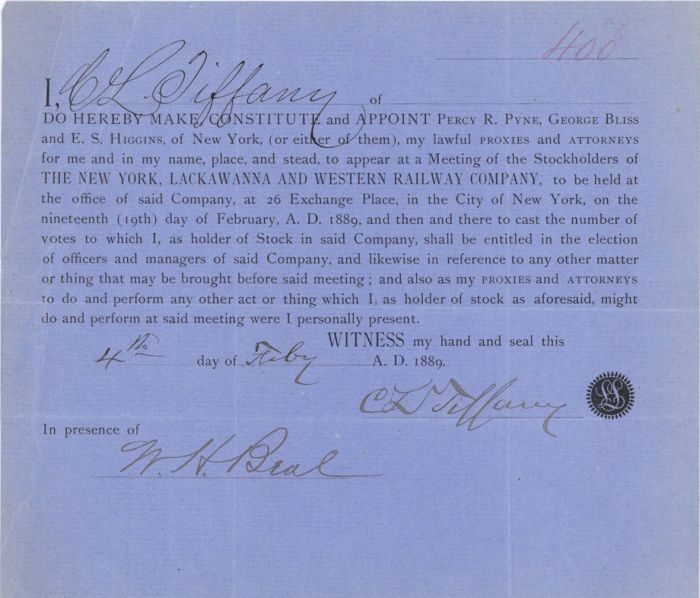 400
I, C L Tiffany of
DO HEREBY MAKE, CONSTITUTE and APPOINT PERCY R. PYNE, GEORGE BLISS
and E. S. HIGGINS, of New York, (or either of them), my lawful PROXIES and ATTORNEYS
for me and in my name, place, and stead, to appear at a Meeting of the Stockholders of
THE NEW YORK, LACKAWANNA AND WESTERN RAILWAY COMPANY, to be held at
the office of said Company, at 26 Exchange Place, in the City of New York, on the
nineteenth (19th) day of February, A. D. 1889, and then and there to cast the number of
votes to which I, as holder of Stock in said Company, shall be entitled in the election
of officers and managers of said Company, and likewise in reference to any other matter
or thing that may be brought before said meeting; and also as my PROXIES and ATTORNEYS
to do and perform any other act or thing which I, as holder of stock as aforesaid, might
do and perform at said meeting were I personally present.
WITNESS my hand and seal this
4th day of Feby A. D. 1889.
C L Tiffany
LS
In presence of
W. H. Beal